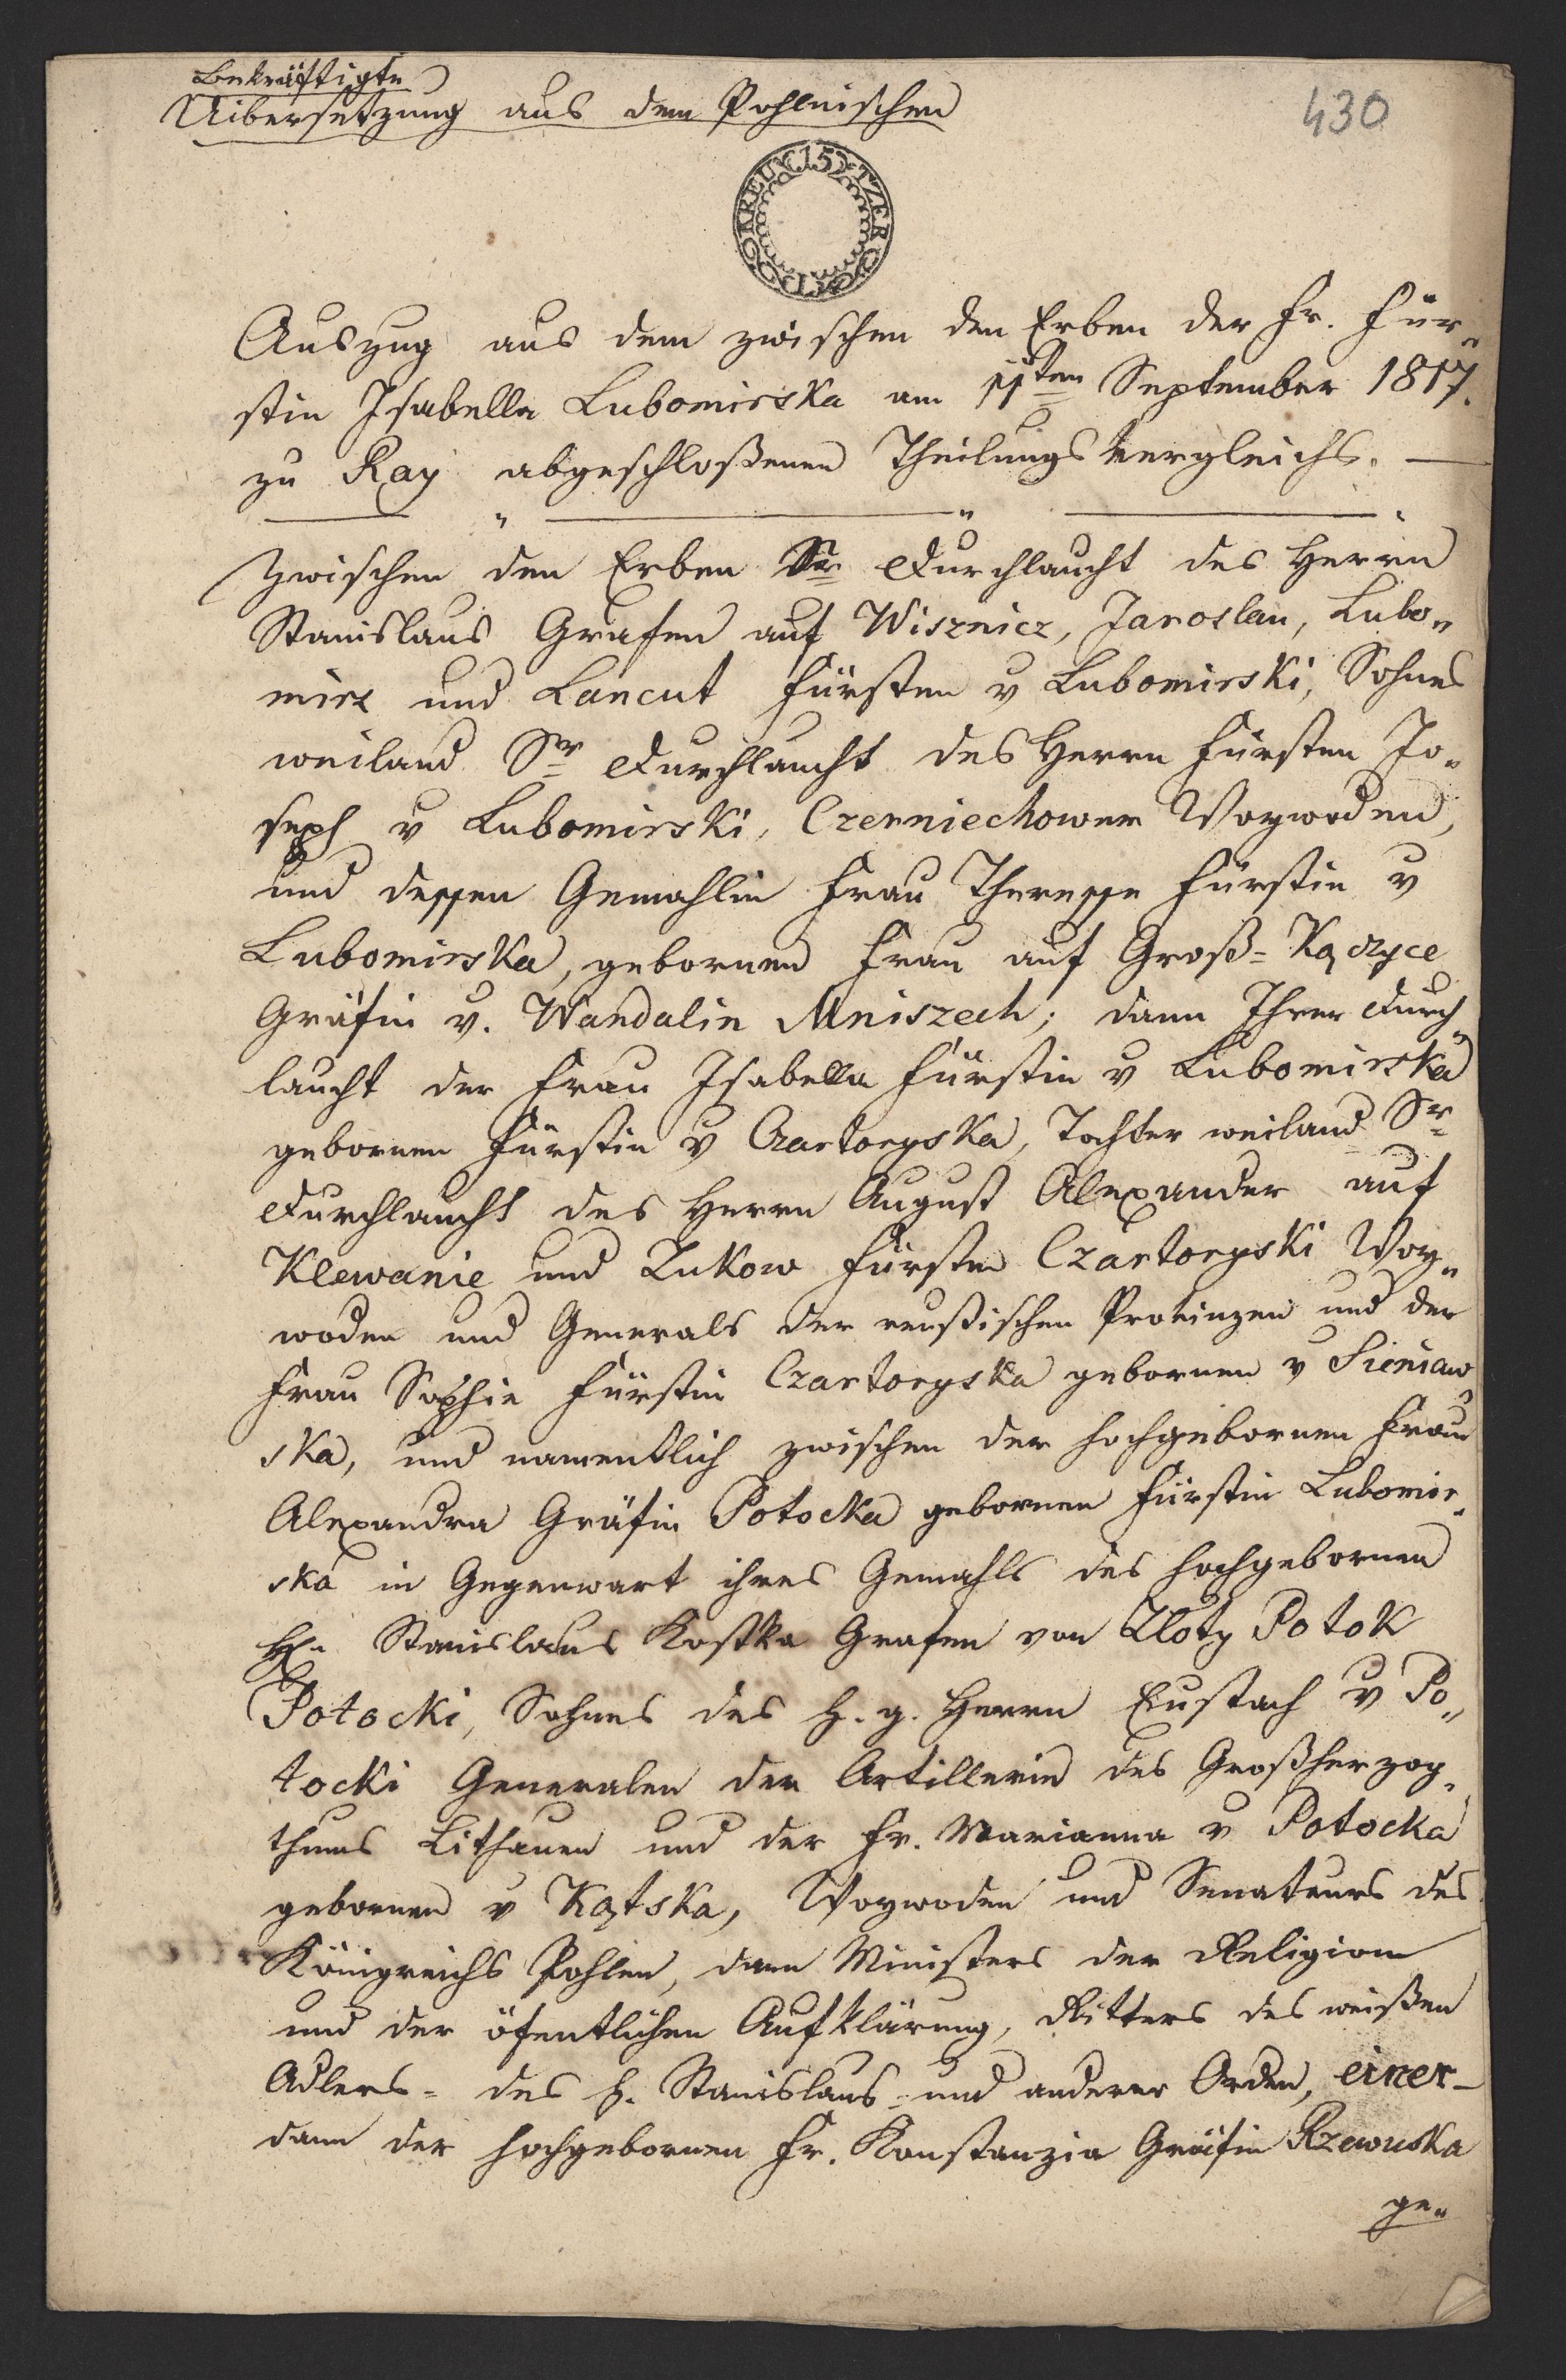 Bekräftigte
Uibersetzung aus dem Pohlnischen
430
15 KREUTZER
Auszug aus dem zwischen den Erben der Fr. Für„
stin Isabella Lubomirska am 11ten September 1817.
zu Ray abgeschloßenen Theilungs Vergleichs. —
Zwischen den Erben Sr Durchlaucht des Herrn
Stanislaus Grafen auf Wisznicz, Jaroslau, Lubo„
mirz und Lancut Fürsten v Lubomirski, Sohnes
weiland Sr Durchlaucht des Herrn Fürsten Jo„
seph v Lubomirski, Czerniechower Woywoden,
und dessen Gemahlin Frau Theresse Fürstin v
Lubomirska, gebornen Frau auf Groß-Kączyce
Gräfin v. Wandalin Mniszech; dann Ihrer Durch„
laucht der Frau Isabella Fürstin v Lubomirska
gebornen Fürstin v Czartoryska, Tochter weiland Sr
Durchlaucht des Herrn August Alexander auf
Klewanie und Zukow Fürsten Czartoryski Woy„
woden und Generals der reußischen Provinzen und der
Frau Sophie Fürstin Czartoryska gebornen v Sieniaw„
ska, und namentlich zwischen der hochgebornen Frau
Alexandra Gräfin Potocka gebornen Fürstin Lubomir„
ska in Gegenwart ihres Gemahls des hochgebornen
H. Stanislaus Kostka Grafen von Zloty Potok
Potocki, Sohnes des h. g. Herrn Eustach v Po„
tocki Generalen der Artillerie des Großherzog„
thums Lithauen und der Fr. Marianna v Potocka
gebornen v Kątska, Woywoden und Senateurs des
Königreichs Pohlen, dann Ministers der Religion
und der öfentlichen Aufklärung, Ritters des weißen
Adlers- des h. Stanislaus- und anderer Orden, einer-
dann der hochgebornen Fr. Konstanzia Gräfin Rzewuska
ge„